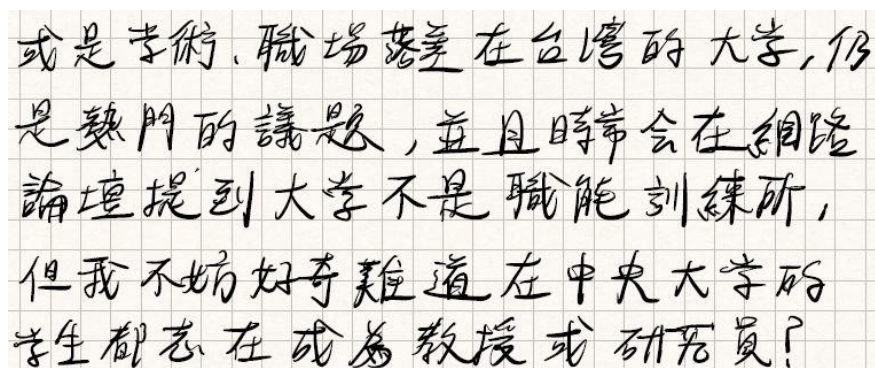 或是学術、職場落差在台灣的大学,仍
是熱門的議題,並且時常会在網路
論壇提到大学不是職能訓練所,
但我不妨好奇難道在中央大学的
学生都志在成為教授或研究員?